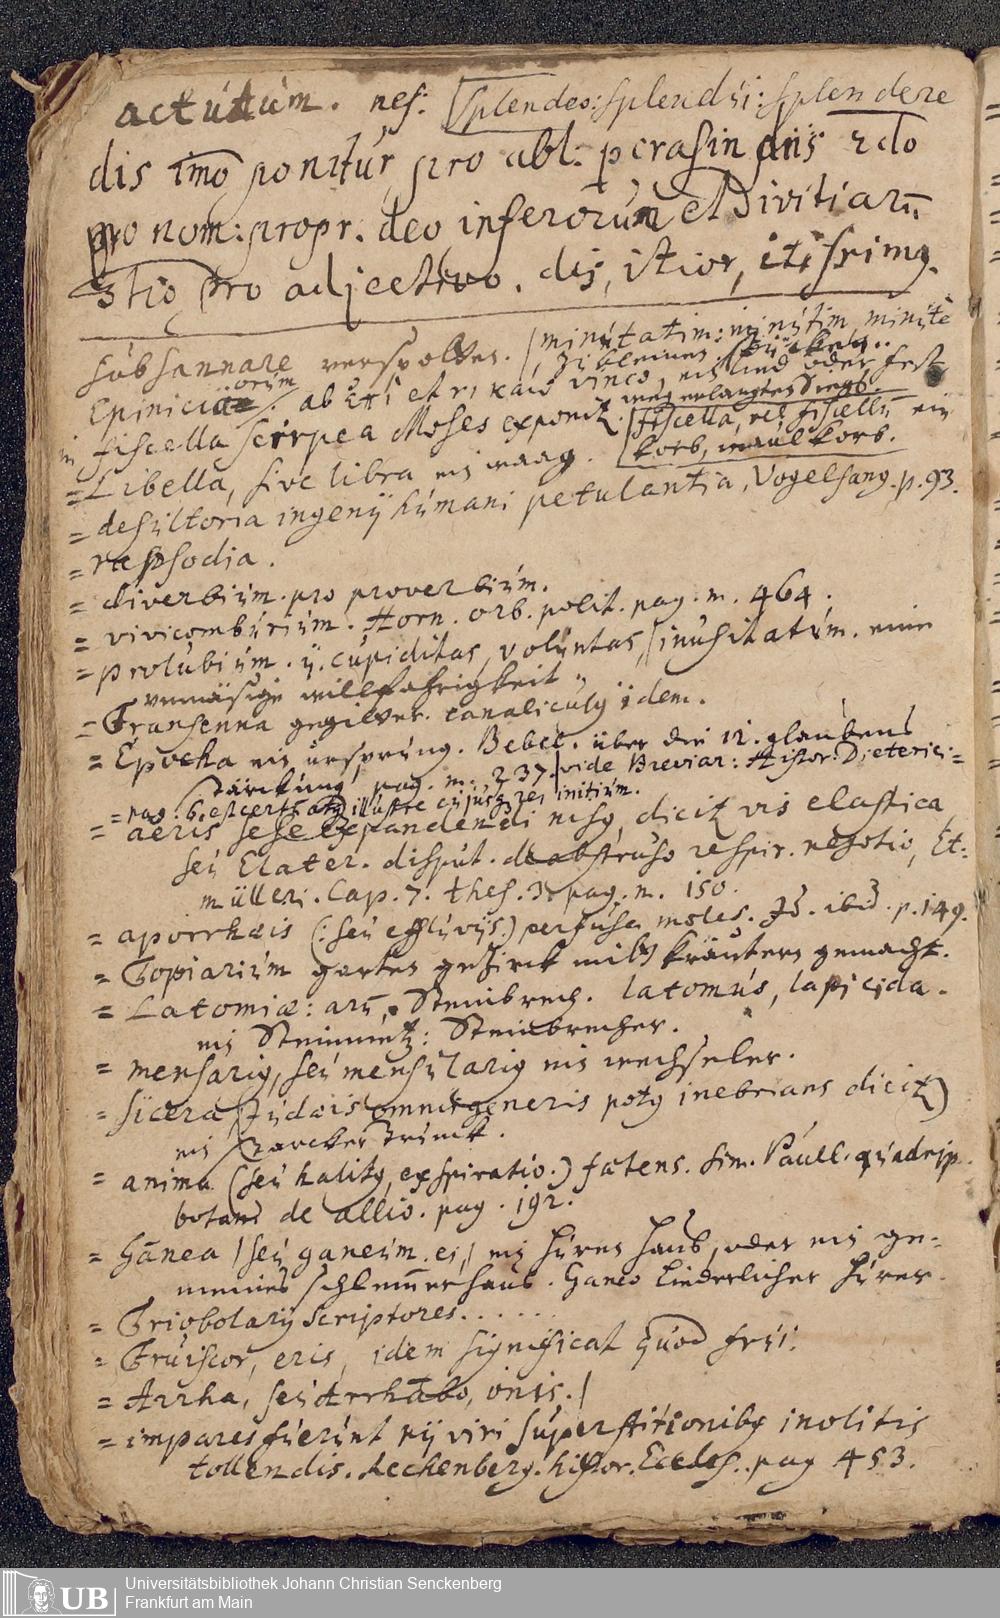 actutum. nes: splendeo: splendui: splendere
dis imo ponitur pro abl. p crasin diis 2do
pro nom: propr. deo inferorum et Divitiarū
3tio pro adjectivo. dis, itior, itissimq.
subsannare verspotten. minutatim: minutim minute
zu kleinen stücken.
Epinicia orum ab et vinco, ein lied oder fest
weg erlangtes Siegs.
fiscella scirpea Moses exponit. fiscella, vel fiscellū ein
korb, maulkorb.
= Libella, sive libra ein waag.
= desultoria ingenÿ humani petulantia, Vogelsang. p. 93.
= rapsodia.
= diverbium. pro proverbium.
= vivicomburium. Horn. orb. polit. pag. m. 464.
= prolubium. ÿ. cupiditas, voluntas, inusitatum. eine
unmäsige willfahrigkeit
= Transenna gegitter. canaliculq idem.
= Epocha ein ursprung. Bebel. über die 12. glaubens
stärckung pag. m. 237. vide Breviar: Histor: Dieterici=
= pag. 6. est certū atq illustre cujusq rei initium.
= aëris sese expandendi nisq, dicit vis elastica
seu Elater. disput. de abstruso respir. negotio, Et=
mülleri. Cap. 7. thes. 3. pag. m. 150.
= aporrhœis (: seu effluvÿs.) perfusa moles. Id. ibid. p. 149.
= Topiarium garten gezirck mit kräutern gemacht.
= Latomiæ: arū, Steinbrech. latomus, lapicida.
ein Steinmetz: Steinbrecher.
= mensariq, seu mensulariq ein wechseler.
= sicera Judæis omnis generis potq inebrians dicit)
ein starcker trunck.
= anima (seu halitq, exspiratio.) fœtens. Sim. Paull. quadrip.
botan de allio. pag. 192.
= Gānea / seu ganeum. ei, / ein huren haus, oder ein ge=
meines schlem̄erhaus. Ganeo liederlicher hurer.
= Triobolarÿ scriptores......
= Fruiscor, eris, idem significat quod frui:
= Arrha, seu Arrhābo, onis. /
= impares fuerunt ÿ viri superstitionibq inolitis
tollendis. Rechenberg. histor. Eccles. pag 453.
Universitätsbibliothek Johann Christian Senckenberg
Frankfurt am Main
UB